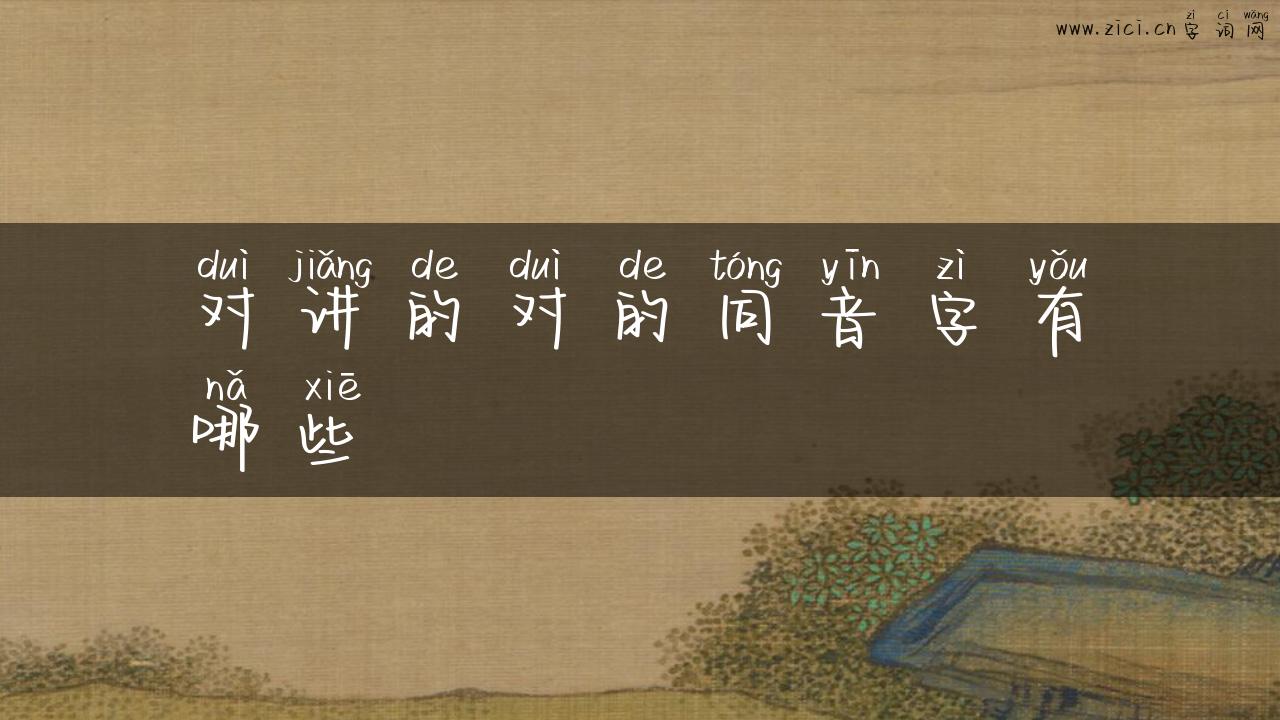 zì cí wǎng
www.zici.cn 字词网
duì jiǎng de duì de tóng yīn zì yǒu
对讲的对的同音字有
nǎ xiē
哪些